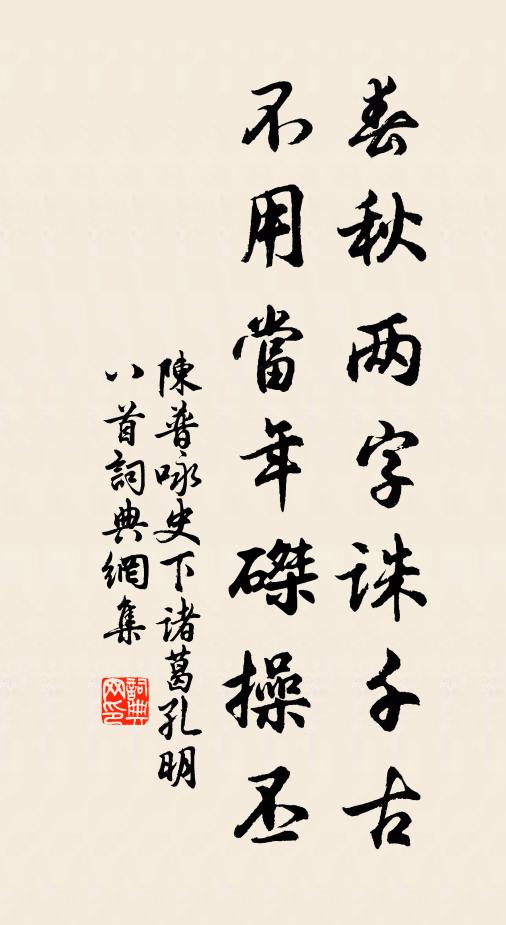 春秋两字诛千古
不用當年磔操丕
陳普咏史下诸葛孔明
八首詞典網集
詞典
网印